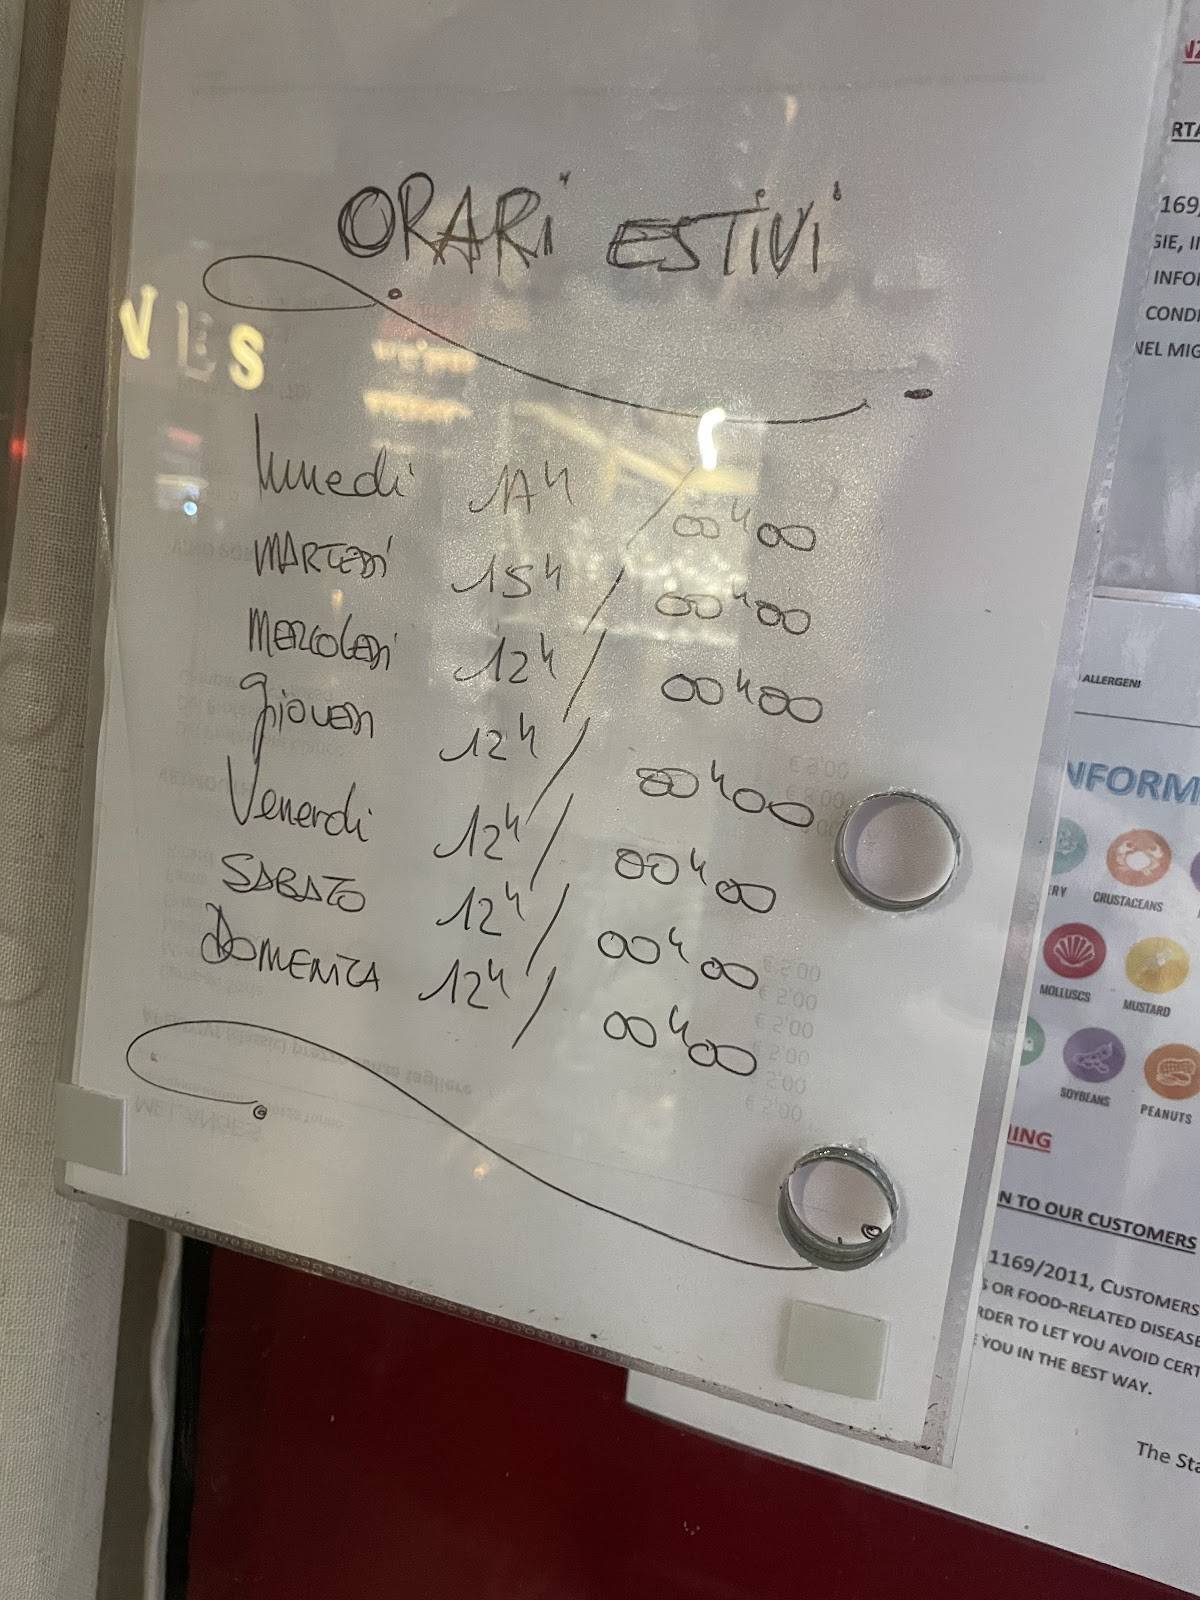 ORARI ESTIVI
VES
lunedì 17h / 00h00
MARTEDÌ 15h / 00h00
MERCOLEDÌ 12h / 00h00
giovedì 12h / 00h00
Venerdì 12h / 00h00
SABATO 12h / 00h00
DOMENICA 12h / 00h00
RTA
169/
INFO
CONDI
NEL MIG
ALLERGENI
NFORM
RY
CRUSTACEANS
MOLLUSCS
MUSTARD
SOYBEANS
PEANUTS
N TO OUR CUSTOMERS
1169/2011, CUSTOMERS
S OR FOOD-RELATED DISEASE
RDER TO LET YOU AVOID CERT
YOU IN THE BEST WAY.
The Sta